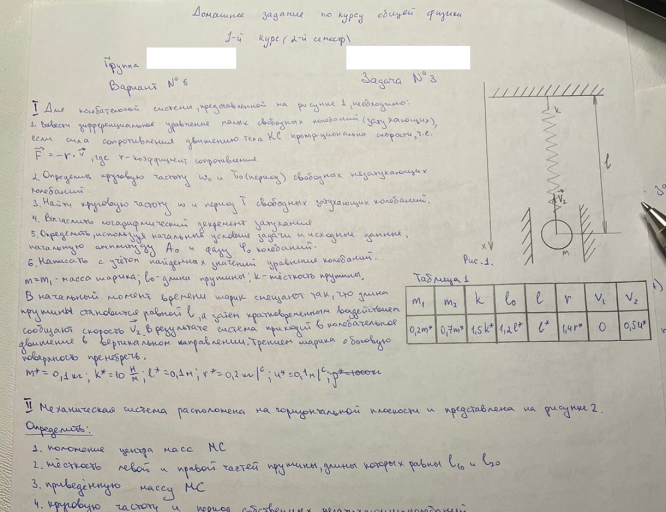 Домашнее задание по курсу общей физики
1-й курс (2-й семестр)
Группа
Вариант № 6
Задача № 3
I Для колебательной системы, представленной на рисунке 1, необходимо:
1. Вывести дифференциальное уравнение малых свободных колебаний (затухающих),
если сила сопротивления движению тела КС пропорциональна скорости, т.е.
F = -r·V, где r - коэффициент сопротивления
2. Определить круговую частоту ω₀ и T₀ (период) свободных незатухающих
колебаний.
3. Найти круговую частоту ω и период T свободных затухающих колебаний.
4. Вычислить логарифмический декремент затухания
5. Определить, используя начальные условия задачи и исходные данные,
начальную амплитуду A₀ и фазу φ₀ колебаний.
6. Написать с учётом найденных значений уравнение колебаний.
m = m₁ - масса шарика; l₀ - длина пружины; k - жёсткость пружины.
В начальный момент времени шарик смещают так, что длина
пружины становится равной l, а затем кратковременным воздействием
сообщают скорость V₂. В результате система приходит в колебательное
движение в вертикальном направлении. Трением шарика о боковую
поверхность пренебречь.
m* = 0,1 кг; k* = 10 Н/м; l* = 0,1 м; r* = 0,2 кг/с; u* = 0,1 м/с;
k
l
V₂
m
x
Рис. 1.
Таблица 1
m₁ m₂ k l₀ l r V₁ V₂
0,2m* 0,7m* 1,5k* 1,2l* l* 1,4r* 0 0,5u*
II Механическая система расположена на горизонтальной плоскости и представлена на рисунке 2.
Определить:
1. положение центра масс МС
2. жёсткость левой и правой частей пружины, длины которых равны l₁₀ и l₂₀
3. приведённую массу МС
4. круговую частоту и период собственных незатухающих колебаний